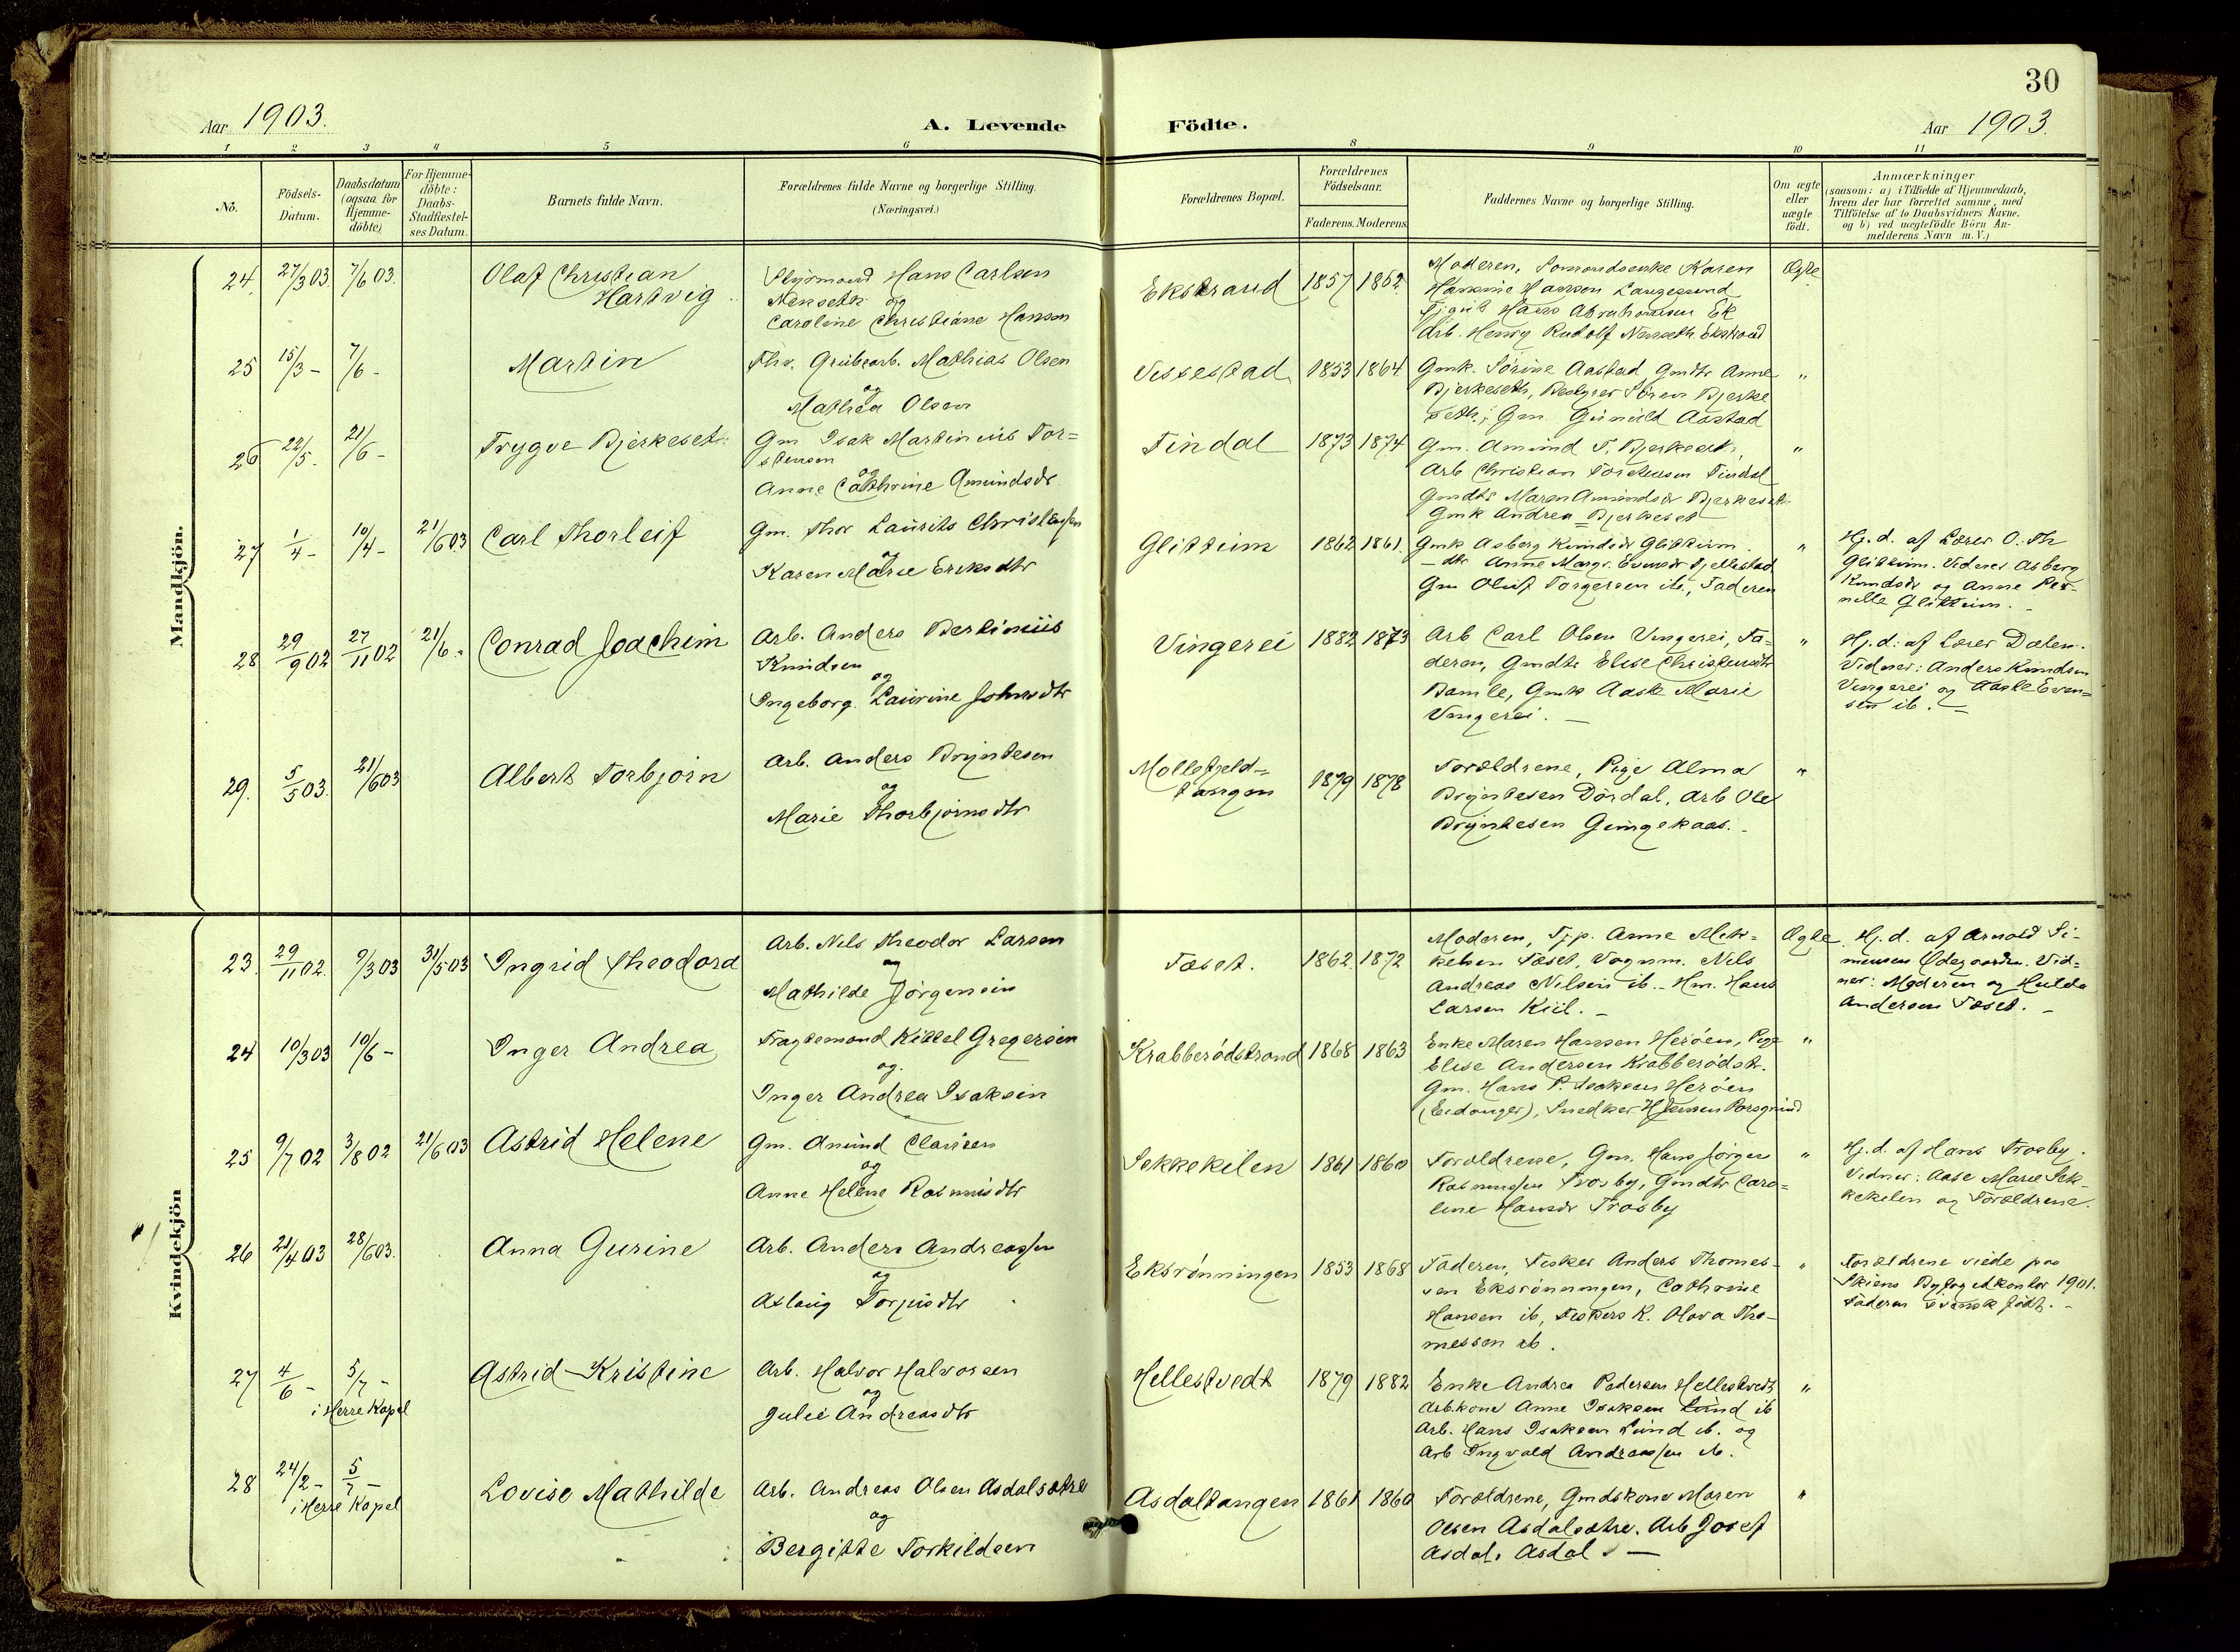 30
Aar 1903.
A. Levende
Födte.
Aar 1903.
1 2 3 4 5 6 8 9 10 11
No.
Födsels-
Datum.
Daabsdatum
(ogsaa for
Hjemme-
döbte)
For Hjemme-
döbte:
Daabs-
Stadfæstel-
ses Datum.
Barnets fulde Navn.
Forældrenes fulde Navne og borgerlige Stilling.
(Næringsvei.)
Forældrenes Bopæl.
Forældrenes
Födselsaar.
Faderens. Moderens.
Faddernes Navne og borgerlige Stilling.
Om ægte
eller
uægte
födt.
Anmærkninger
(saasom: a) i Tilfælde af Hjemmedaab,
hvem der har forrettet samme, med
Tilföielse af to Daabsvidners Navne.
og b) ved uægtefödte Börn An-
melderens Navn m. V.)
Mandkjön.
24. 27/3 03 7/6 03.
Olaf Christian
Hartvig
Hans Carlsen
og
Caroline Christiane Hansen
Ekstrand
1857 1862
Moderen, Karen
Hansen Langesund
Hans Abrahamsen Ek
Arb. Henry Rudolf Ekstrand
Ægte
25 15/3 - 7/6 -
Martin
Fhv. Grubearb. Mathias Olsen
og
Mathea Olsen
Vissestad
1853 1864
Gmk. Sörine Aastad, Gmdtr Anne
Bjerkeseth, Bestyrer Sören Bjerke
seth, Gm. Gunuld Aastad
"
26 22/5 - 21/6 -
Trygve Bjerkeset
Gm Isak Martinius Tor=
stensen
og
Anne Cathrine Amundsdr
Findal
1873 1874
Gm. Amund T. Bjerkeset,
Arb Christian Torstensen Findal
Gmdtr Maren Amundsdr Bjerkeset
Gmk Andrea Bjerkeset
"
27 1/4 - 10/4 - 21/6 03
Carl Thorleif
Gm. Thor Laurits Christensen
og
Karen Marie Eriksdtr
Glittum
1862 1861.
Gmk Asberg Knudsdr Glittum
- dtr Anne Margr. Evensdr Fjellestad
Gm Oluf Torgersen ib., Faderen
"
Hj.d. af Lærer O. Th
Glittum. Vidner Asberg
Knudsdr og Anne Per-
nille Glittum. -
28 29/9 02 27/11 02 21/6 -
Conrad Joachim
Arb. Anders Bertinius
Knudsen
og
Ingeborg Laurine Johnsdtr
Vingerei
1882 1873
Arb Carl Olsen Vingerei, Fa-
deren, Gmdtr Elise Christensdtr
Bamle, Gmk Aaste Marie
Vingerei. -
"
Hj.d. af Lærer Dalen.
Vidner: Anders Knudsen
Vingerei og Aaste Even=
sen ib.
29. 5/5 03. 21/6 03
Albert Torbjørn
Arb. Anders Bryntesen
og
Marie Thorbjørnsdtr
Mollefjeld-
tangen
1879 1878
Forældrene, Pige Alma
Bryntesen Dördal, Arb Ole
Bryntesen Gungekaas. -
"
Kvindekjön
23. 29/11 02. 9/3 03 31/5 03
Ingrid Theodora
Arb. Nils Theodor Larsen
og
Mathilde Jörgensen
Tæset.
1862. 1872
Moderen, Tjp. Anne Mik=
kelsen Tæset, Vognm. Nils
Andreas Nilsen ib. - Hm. Hans
Larsen Kiil. -
Ægte
Hj.d. af Arnold Si-
monsen Ødegaarden. Vid=
ner: Moderen og Hulda
Andersen Tæset. -
24 10/3 03 10/6 -
Inger Andrea
Fragtemand Kittel Gregersen
og
Inger Andrea Isaksen
Krabberødstrand
1868 1863
Enke Maren Hansen Herøen, Pige
Elise Andersen Krabberødstr.
Gm. Hans P. Isaksen Herøen
(Eidanger), Snedker H Jensen Porsgrund
"
25 9/7 02 3/8 02 21/6 03
Astrid Helene
Gm. Amund Clausen
og
Anne Helene Rasmusdtr
Sekkekilen
1861 1860
Forældrene, Gm. Hans Jörgen
Rasmussen Trosby, Gmdtr Caro=
line Hansdr Trosby
"
Hj.d. af Hans Trosby.
Vidner: Aase Marie Sek-
kekilen og Forældrene.
26 21/4 03 28/6 03.
Anna Gurine
Arb. Anders Andreassen
og
Aslaug Torjusdtr
Eksrønningen
1853 1868
Faderen, Fisker Anders Thomes-
sen Eksrønningen, Cathrine
Hansen ib, Fiskers K. Olava Tho-
messen ib.
"
Forældrene viede paa
Skiens Byfogedkontor 1901.
Faderen svensk födt. -
27 4/6 - 5/7 -
i Herre Kapel
Astrid Kristine
Arb. Halvor Halvorsen
og
Julie Andreasdtr
Hellestvedt
1879 1882
Enke Andrea Pedersen Hellestvedt
Arbkone Anne Isaksen Lund ib
Arb. Hans Isaksen Lund ib. og
Arb Ingvald Andreassen ib.
"
28 24/2 - 5/7 -
i Herre Kapel
Lovise Mathilde
Arb. Andreas Olsen Asdalsætre
og
Bergitte Torkildsen
Asdaltangen
1861 1860
Forældrene, Gmdskone Maren
Olsen Asdalsætre. Arb Josef
Asdal, Asdal. -
"